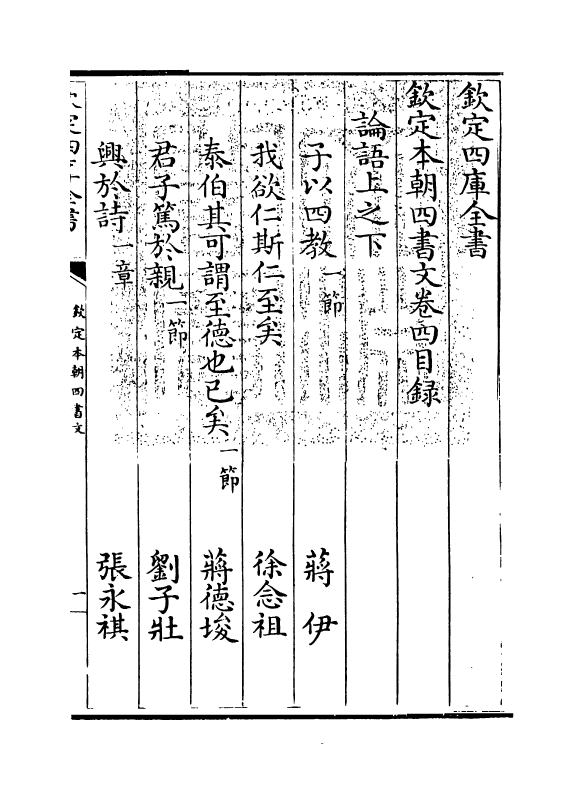 欽定四庫全書
欽定本朝四書文卷四目録
論語上之下
子以四教一節　蔣伊
我欲仁斯仁至矣　徐念祖
泰伯其可謂至德也已矣一節　蔣德埈
君子篤於親一節　劉子壯
興於詩一章　張永祺
欽定四庫全書
欽定本朝四書文
一